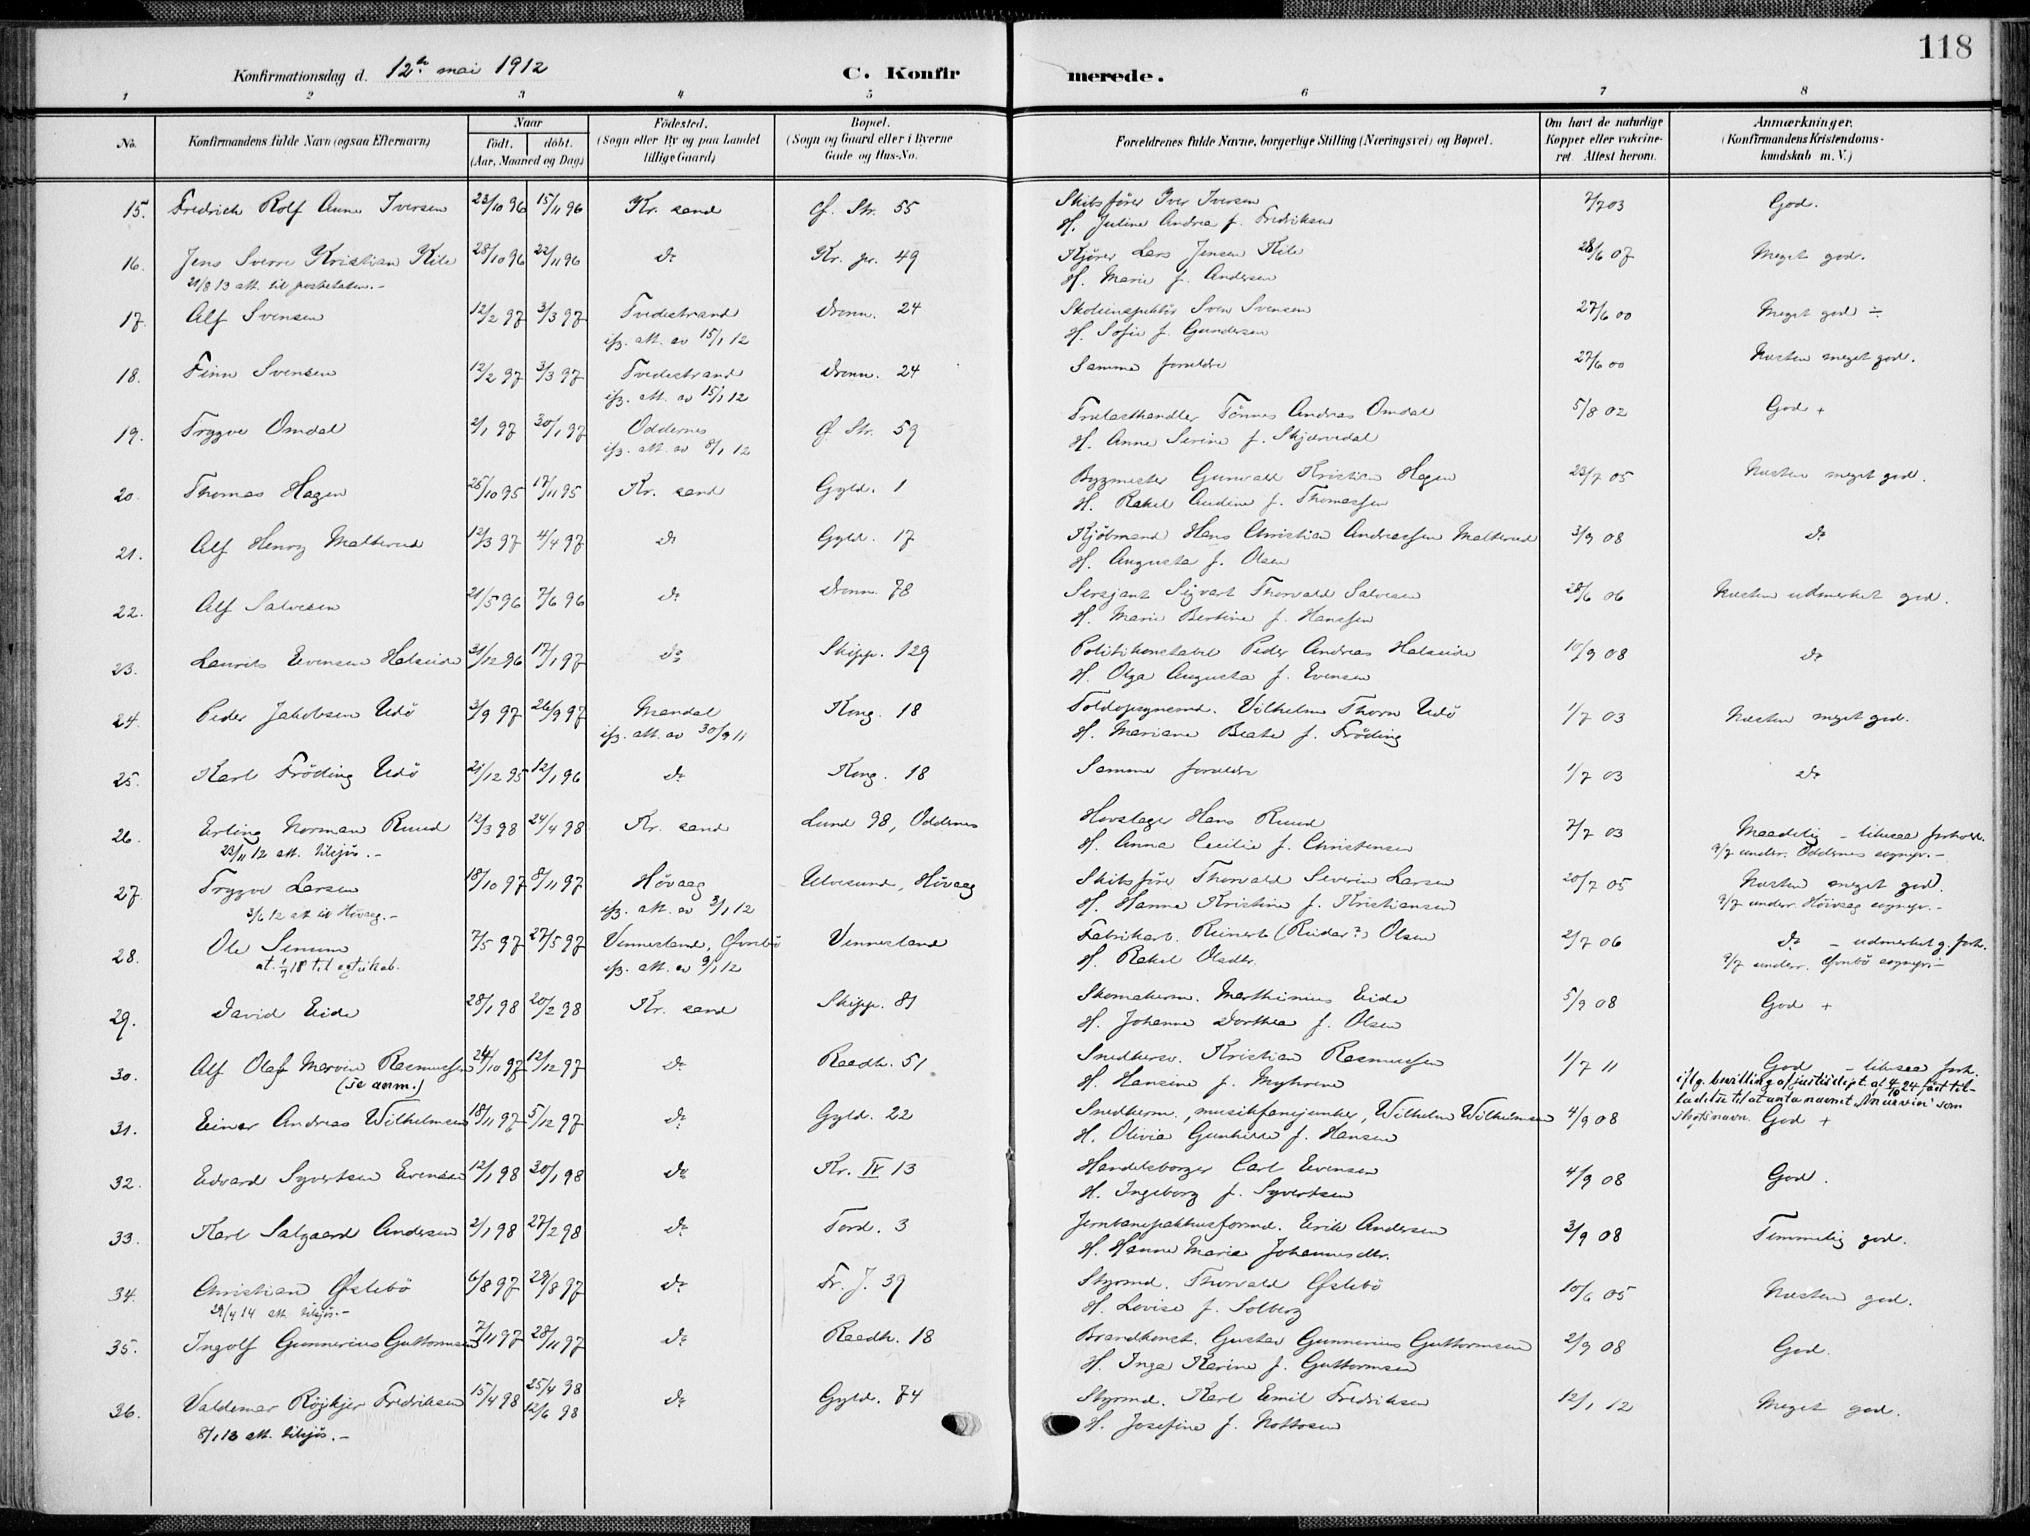 118
Konfirmationsdag d. 12te mai 1912 C. Konfir merede.
1 2 3 4 5 6 7 8
No. Konfirmandens fulde Navn (ogsaa Efternavn) Naar født. døbt. (Aar, Maaned og Dag) Fødested. (Sogn eller By og paa Landet tillige Gaard) Bopæl. (Sogn og Gaard eller i Byerne Gade og Hus-No. Forældrenes fulde Navne, borgerlige Stilling (Næringsvei) og Bopæl. Om havt de naturlige Kopper eller vakcineret Attest herom. Anmærkninger. (Konfirmandens Kristendomskundskab m. V.)
15. Fredrich Rolf Iversen 23/10 96 15/11 96 Kr. sand Ø. Str. 55 Skibsfører Iver Iversen 7/7 03 God.
H. Juline Andrea f. Fredriksen
16. Jens Sverre Kristian Kile 28/10 96 22/11 96 do Kr. pr. 49 Kjører Lars Jensen Kile 28/6 07 Meget god.
21/8 13 att. til postetaten.- H. Marie f. Andersen
17. Alf Svensen 12/2 97 3/3 97 Tvedestrand Dronn. 24 Skoleinspektør Sven Svensen 27/6 00 Meget god ÷
ifg. att. av 15/1 12 H. Sofie f. Gundersen
18. Finn Svensen 12/2 97 3/3 97 Tvedestrand Dronn. 24 Samme forældre 27/6 00 Næsten meget god.
ifg. att. av 15/1 12
19. Trygve Omdal 2/1 97 30/1 97 Oddernes Ø Str. 59 Trælasthandler Tönnes Andreas Omdal 5/8 02 God +
ifg. att. av 8/1 12 H. Anne Serine f. Skjævedal
20. Thomas Hagen 25/10 95 17/11 95 Kr. sand Gyld. 1 Bygmester Gunvald Kristian Hagen 23/7 05 Næsten meget god.
H. Rakel Andine f. Thomassen
21. Alf Henry Malterud 12/3 97 4/4 97 do Gyld. 17 Kjøbmand Hans Christian Andreassen Malterud 3/9 08 do
H. Augusta f. Olsen
22. Alf Salvesen 21/5 96 7/6 96 do Dronn. 78 Sersjant Sigvart Thorvald Salvesen 28/6 06 Næsten udmerket god.
H. Marie Bertine f. Hanssen
23. Laurits Evensen Halseide 31/12 96 17/1 97 do Skipp. 129 Politikonstabel Peder Andreas Halseide 10/9 08 do
H. Olga Augusta f. Evensen
24. Peder Jakobsen Udö 3/9 97 26/9 97 Mandal Kong. 18 Toldopsynsmd. Vilhelm Thorn Udö 1/7 03 Næsten meget god.
ifg. att. av 30/9 11 H. Mariane Beate f. Fröding
25. Karl Fröding Udö 21/12 95 12/1 96 do Kong. 18 Samme forældre 1/7 03 do
26. Erling Norman Ruud 12/3 98 24/4 98 Kr. sand Lund 98, Oddernes Hovslager Hans Ruud 7/7 03 Maadelig - likesaa forhold.
23/11 12 att. tilsjøs.- H. Anna Cecilie f. Christensen 9/7 underr. Oddernes sognepr.-
27. Trygve Larsen 18/10 97 8/11 97 Høvaag Ulvesund, Høvaag Skibsfører Thorvald Severin Larsen 20/7 05 Næsten meget god.
3/6 12 att til Høvaag.- ifg. att. av 3/1 12 H. Hanne Kristine f. Kristiansen 9/7 underr. Höivaag sognepr.-
28. Ole Senum 7/5 97 27/5 97 Vennesland, Øvrebø Vennesland Fabrikarb. Reinert (Reidar?) Olsen 2/7 06 do - udmerket g. forh.
at. 1/7 18 til egteskab. ifg. att. av 9/1 12 H. Rakel Olsdtr. 9/7 underr. Øvrebö sognepr.-
29. David Eide 28/1 98 20/2 98 Kr. sand Skipp. 81 Skomakerm. Marthinius Eide 5/9 08 God +
H. Johanne Dorthea f. Olsen
30. Alf Olaf Marvin Rasmussen 24/10 97 12/12 97 do Raadh. 51 Snedkersv. Kristian Rasmussen 1/7 11 God - likesaa forh.
(se anm.) H. Hansine f. Myhren iflg. bevilling af justisdept. at 4/10 24 faat tilladelse til at anta navnet som slegtsnavn.
31. Einar Andreas Wilhelmsen 18/11 97 5/12 97 do Gyld. 22 Snedkerm., musikfanejunker, Wilhelm Wilhelmsen 4/9 08 God +
H. Olivia Gunhilde f. Hansen
32. Edvard Syvertsen Evensen 12/1 98 30/1 98 do Kr. IV 13 Handelsborger Carl Evensen 4/9 08 God.
H. Ingeborg f. Syvertsen
33. Karl Salgaard Andersen 2/1 98 27/2 98 do Tord. 3 Jernbanepakhusformd. Eirik Andersen 3/9 08 Temmelig god.
H. Hanne Marie Johannesdtr.
34. Christian Øslebö 6/8 97 29/8 97 do Fr. J. 39 Styrmd. Thorvald Øslebö 10/6 05 Næsten god.
29/4 14 att. tilsjøs.- H. Lovise f. Solberg
35. Ingolf Gunnerius Guttormsen 7/11 97 28/11 97 do Raadh. 18 Brandkonst. Gustav Gunnerius Guttormsen 2/9 08 God.
H. Inga Karine f. Guttormsen
36. Valdemar Röjkjer Fredriksen 15/4 98 25/4 98 do Gyld. 74 Styrmd. Karl Emil Fredriksen 12/1 12 Meget god.
12/6 98
8/1 13 att. tilsjøs.- H. Josefine f. Nottosen